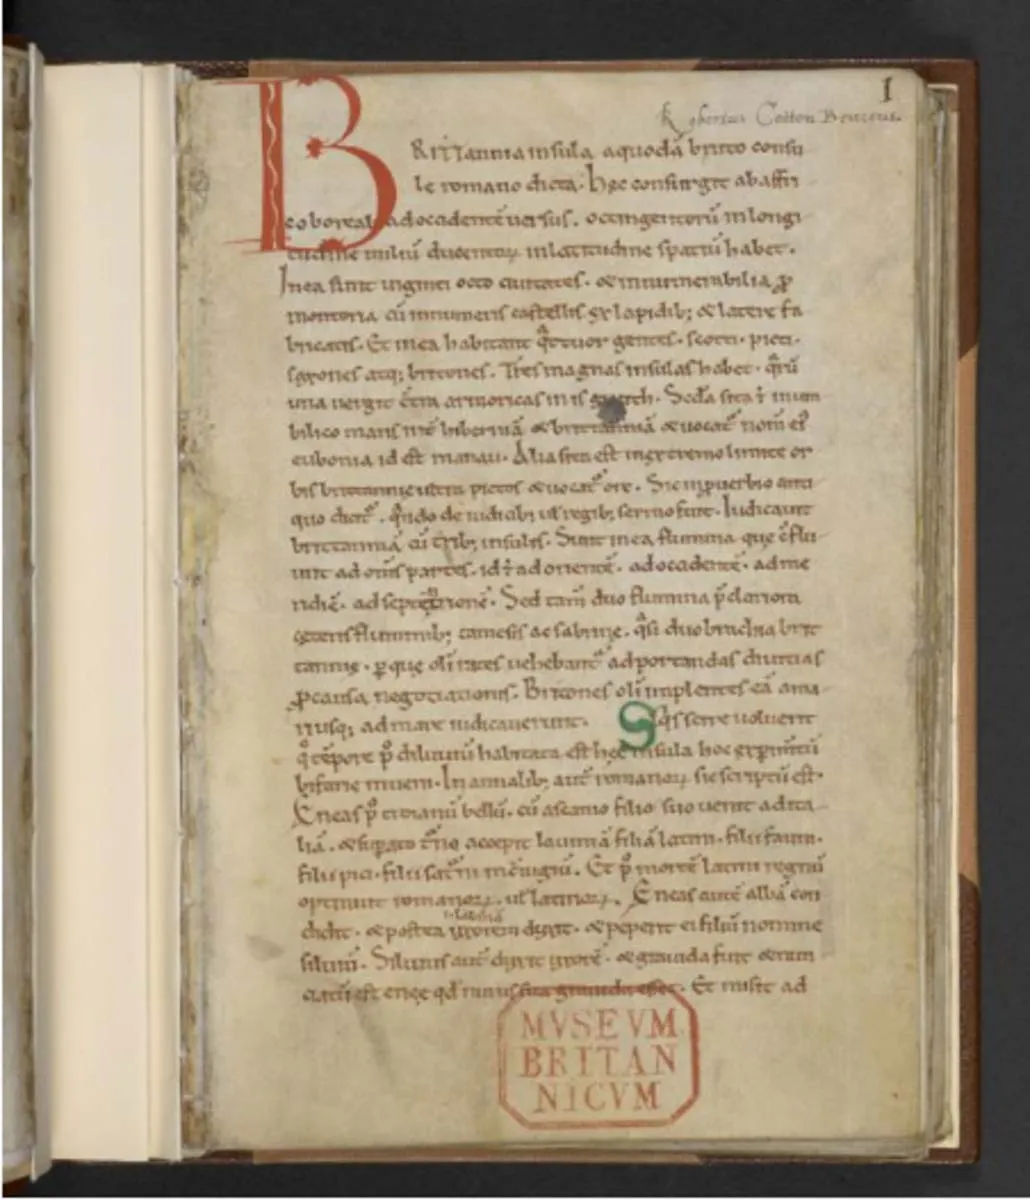 1
Robertus Cotton Bruceus
BRITTannia insula a quodā britto consu
le romano dicta. Hęc consurgit ab affri
co boreali ad occidentē uersus. octingentorū in longi
tudine miliū ducentoꝝ in latitudine spatiū habet.
In ea sunt uiginti octo ciuitates. & innumerabilia ꝓ
montoria cū innumeris castellis ex lapidib; & latere fa
bricatis. Et in ea habitant qͣttuor gentes. scotti. picti.
saxones atq; brittones. Tres magnas insulas habet. qͣrū
una uergit cͨtra armoricas
bilico maris & uocat̄ nom̄ eiꝰ
eubonia id est manau. Alia sita est in extremo limite or
bis brittannię ultra pictos & uocat̄ orc. Sic in ꝓuerbio anti
quo dicit̄. qͣndo de iudicib; ul̄ regib; sermo fuit. Iudicauit
brittanniā cū trib; insulis. Sunt in ea flumina quę cōflu
unt ad om̄s partes. id ÷ ad orientē. ad occidentē. ad me
ridiē. ad septētrionē. Sed tam̄ duo flumina p̄clariora
cęteris fluminib; tamesis ac sabrinę. qͣsi duo brachia brit
tannię. ꝑ quę oli rates uehebant̄ ad portandas diuitias
ꝓ causa negotiationis. Brittones oli implentes eā a ma
ri usq; ad mare iudicauerunt. Siqͥs scire uoluerit
qͦ tēpore p̄ diluuiū habitata est hęc insula hoc exꝑimtū
bifarie inueni. In annalib; aut̄ romanoꝝ sic scriptū est.
Eneas p̄ troianū bellū. cū ascanio filio suo uenit ad ita
liā. & suꝑato t̄no accepit lauiniā filiā latini. filii fauni.
filii pici. filii sat̄ni Et p̄ mortē latini regnū
optinuit romanoꝝ. ul̄ latinoꝝ. Eneas autē albā con
didit. & postea uxorem duxit. & peperit ei filiū nomine
siluiū. Siluius aut̄ duxit uxorē. & grauida fuit & nun
ciatū est enęę qd̄ nurus sua grauida esset. Et misit ad
MVSEVM
BRITAN
NICVM